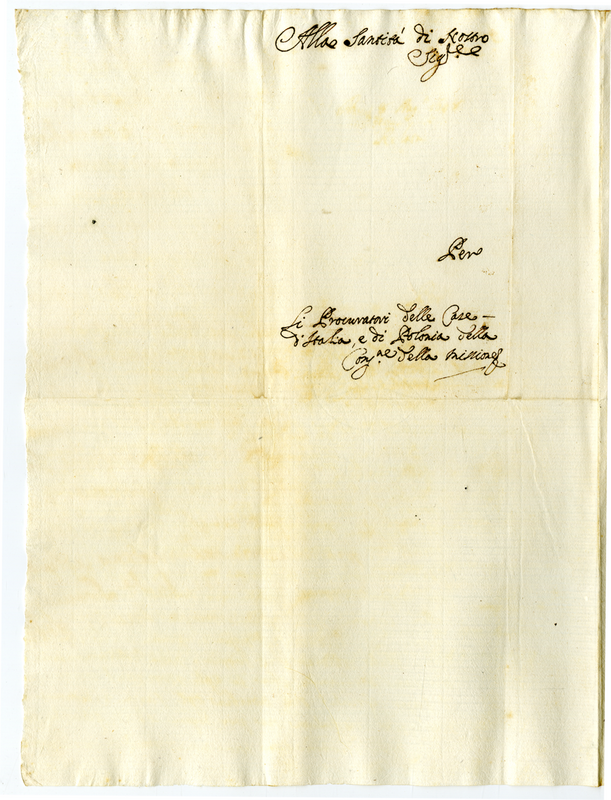 Alla Santità di Nostro
Sig.re
Per
Li Procuratori delle Case
d'Italia, e di Polonia della
Con.ne della Missione